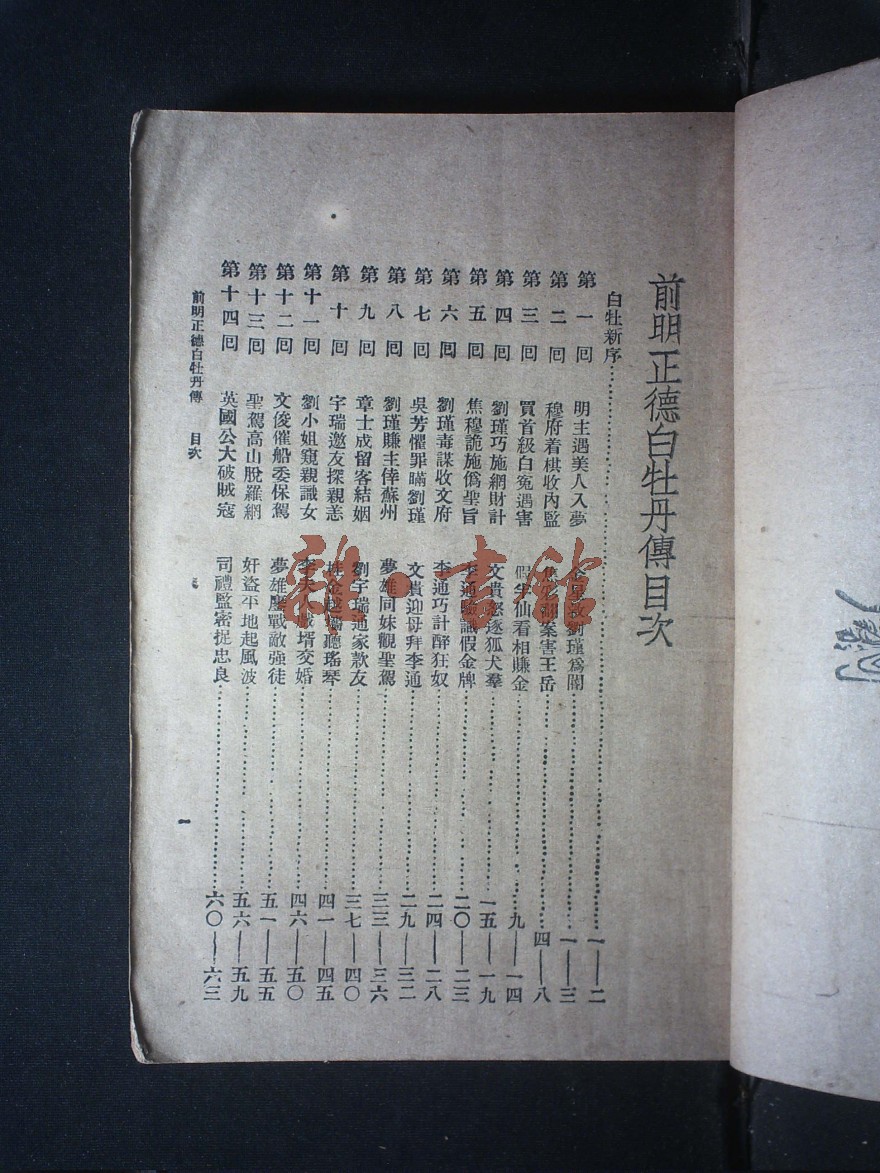 前明正德白牡丹傳目次
白牡新序……一——二
第一回 明主遇美人入夢 救劉瑾為閹……一——三
第二回 穆府着棋收內監 案害王岳……四——八
第三回 買首級白冤遇害 假半仙看相賺金……九——一四
第四回 劉瑾巧施網財計 文貴逐狐犬羣……一五——一九
第五回 焦穆詭施僞聖旨 李通驗識假金牌……二〇——二三
第六回 劉瑾毒謀收文府 李通巧計醉狂奴……二四——二八
第七回 吳芳懼罪瞞劉瑾 文貴迎母拜李通……二九——三二
第八回 劉瑾賺主倖蘇州 夢雄同妹觀聖駕……三三——三六
第九回 章士成留客結姻 劉宇瑞通家款友……三七——四〇
第十回 宇瑞邀友探親恙 桂金越牆聽瑤琴……四一——四五
第十一回 劉小姐窺親識女 李夫人 壻交婚……四六——五〇
第十二回 文俊催船委保駕 夢雄鏖戰敵強徒……五一——五五
第十三回 聖駕高山脫羅網 奸盜平地起風波……五六——五九
第十四回 英國公大破賊寇 司禮監密捉忠良……六〇——六三
前明正德白牡丹傳 目次
一
雜·書館